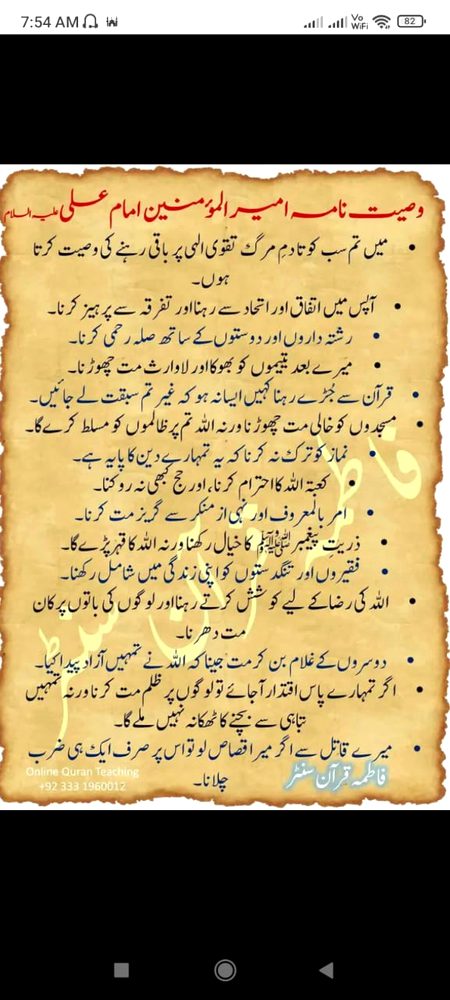 7:54 AM
Vo WiFi
82
وصیت نامہ امیر المؤمنین امام علی علیہ السلام
• میں تم سب کو تادمِ مرگ تقویٰ الٰہی پر باقی رہنے کی وصیت کرتا
ہوں۔
• آپس میں اتفاق اور اتحاد سے رہنا اور تفرقہ سے پرہیز کرنا۔
• رشتہ داروں اور دوستوں کے ساتھ صلہ رحمی کرنا۔
• میرے بعد یتیموں کو بھوکا اور لاوارث مت چھوڑنا۔
• قرآن سے جُڑے رہنا کہیں ایسا نہ ہو کہ غیر تم سبقت لے جائیں۔
• مسجدوں کو خالی مت چھوڑنا ورنہ اللہ تم پر ظالموں کو مسلط کرے گا۔
• نماز کو ترک نہ کرنا کہ یہ تمہارے دین کا پایہ ہے۔
• کعبۃ اللہ کا احترام کرنا، اور حج کبھی نہ روکنا۔
• امر بالمعروف اور نہی از منکر سے گریز مت کرنا۔
• ذریتِ پیغمبر ﷺ کا خیال رکھنا ورنہ اللہ کا قہر پڑے گا۔
• فقیروں اور تنگدستوں کو اپنی زندگی میں شامل رکھنا۔
• اللہ کی رضا کے لیے کوشش کرتے رہنا اور لوگوں کی باتوں پر کان
مت دھرنا۔
• دوسروں کے غلام بن کر مت جینا کہ اللہ نے تمہیں آزاد پیدا کیا۔
• اگر تمہارے پاس اقتدار آجائے تو لوگوں پر ظلم مت کرنا ورنہ تمہیں
تباہی سے بچنے کا ٹھکانہ نہیں ملے گا۔
• میرے قاتل سے اگر میرا قصاص لو تو اس پر صرف ایک ہی ضرب
چلانا۔
فاطمہ قرآن سنٹر
Online Quran Teaching
+92 333 1960012
فاطمہ قرآن سنٹر